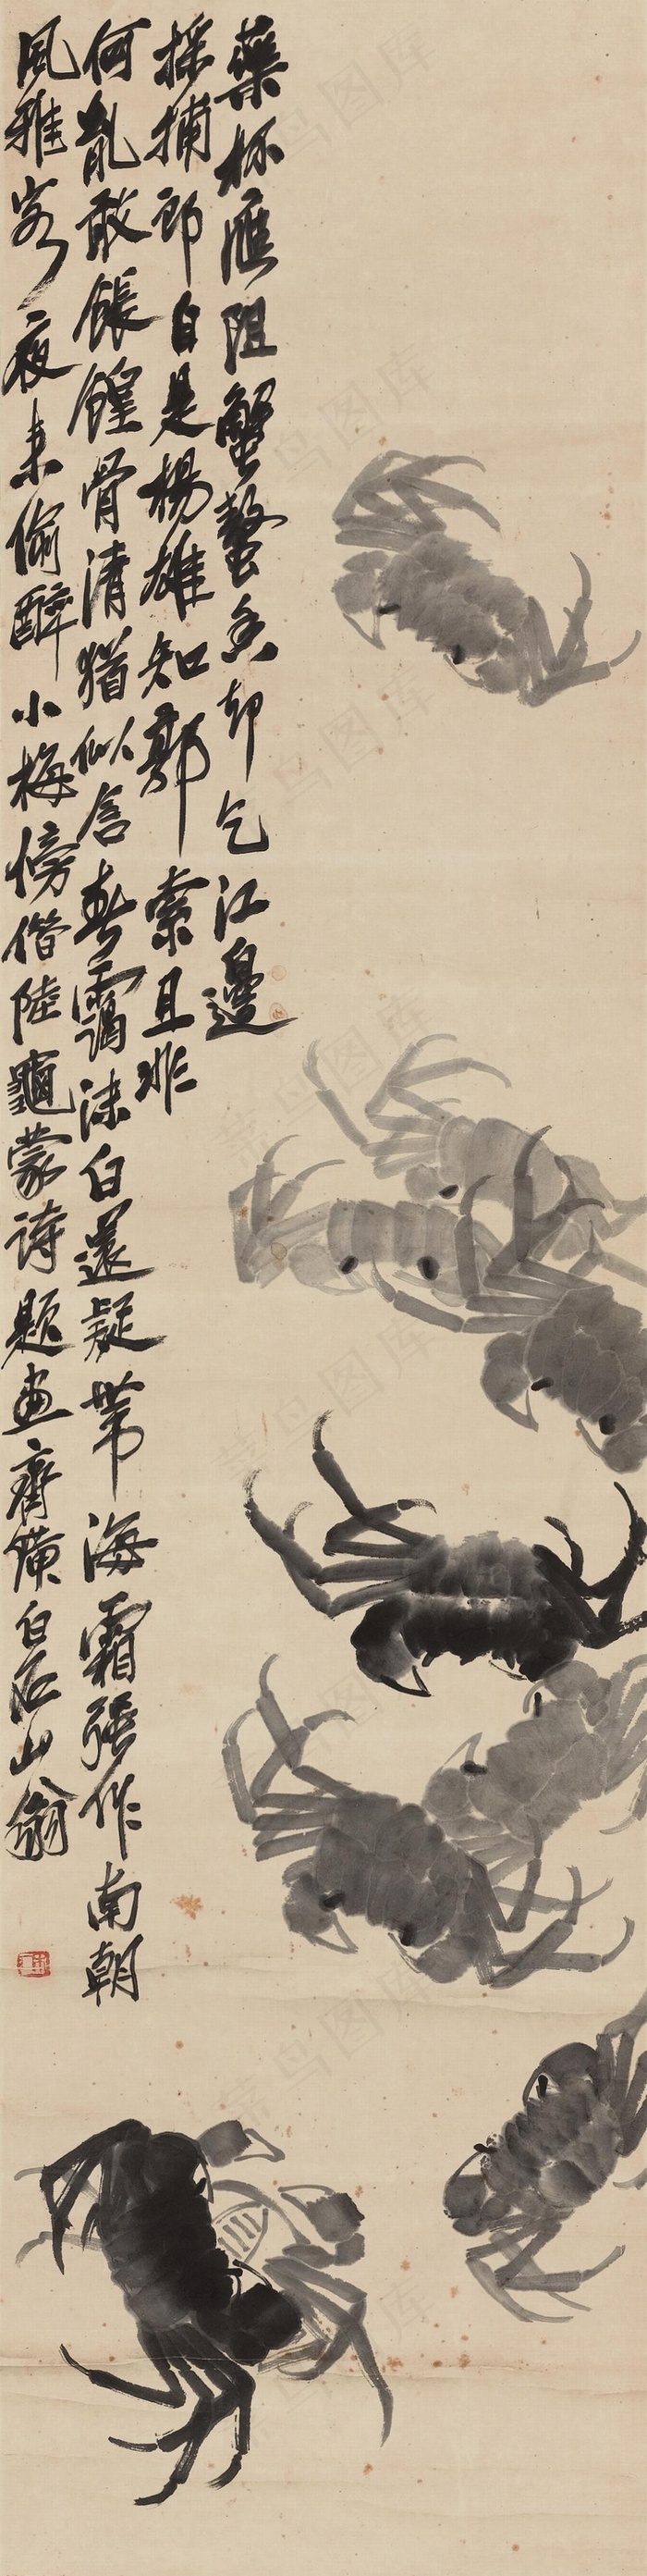 藥杯應阻蟹螯香却乞江邊
採捕郎自是楊雄知郭索且非
何胤敢餦餭骨清猶似含春靄沫白還疑帶海霜强作南朝
風雅客夜来偷醉小梅傍借陸龜蒙詩題畫齊璜白石山翁
菜鸟图库